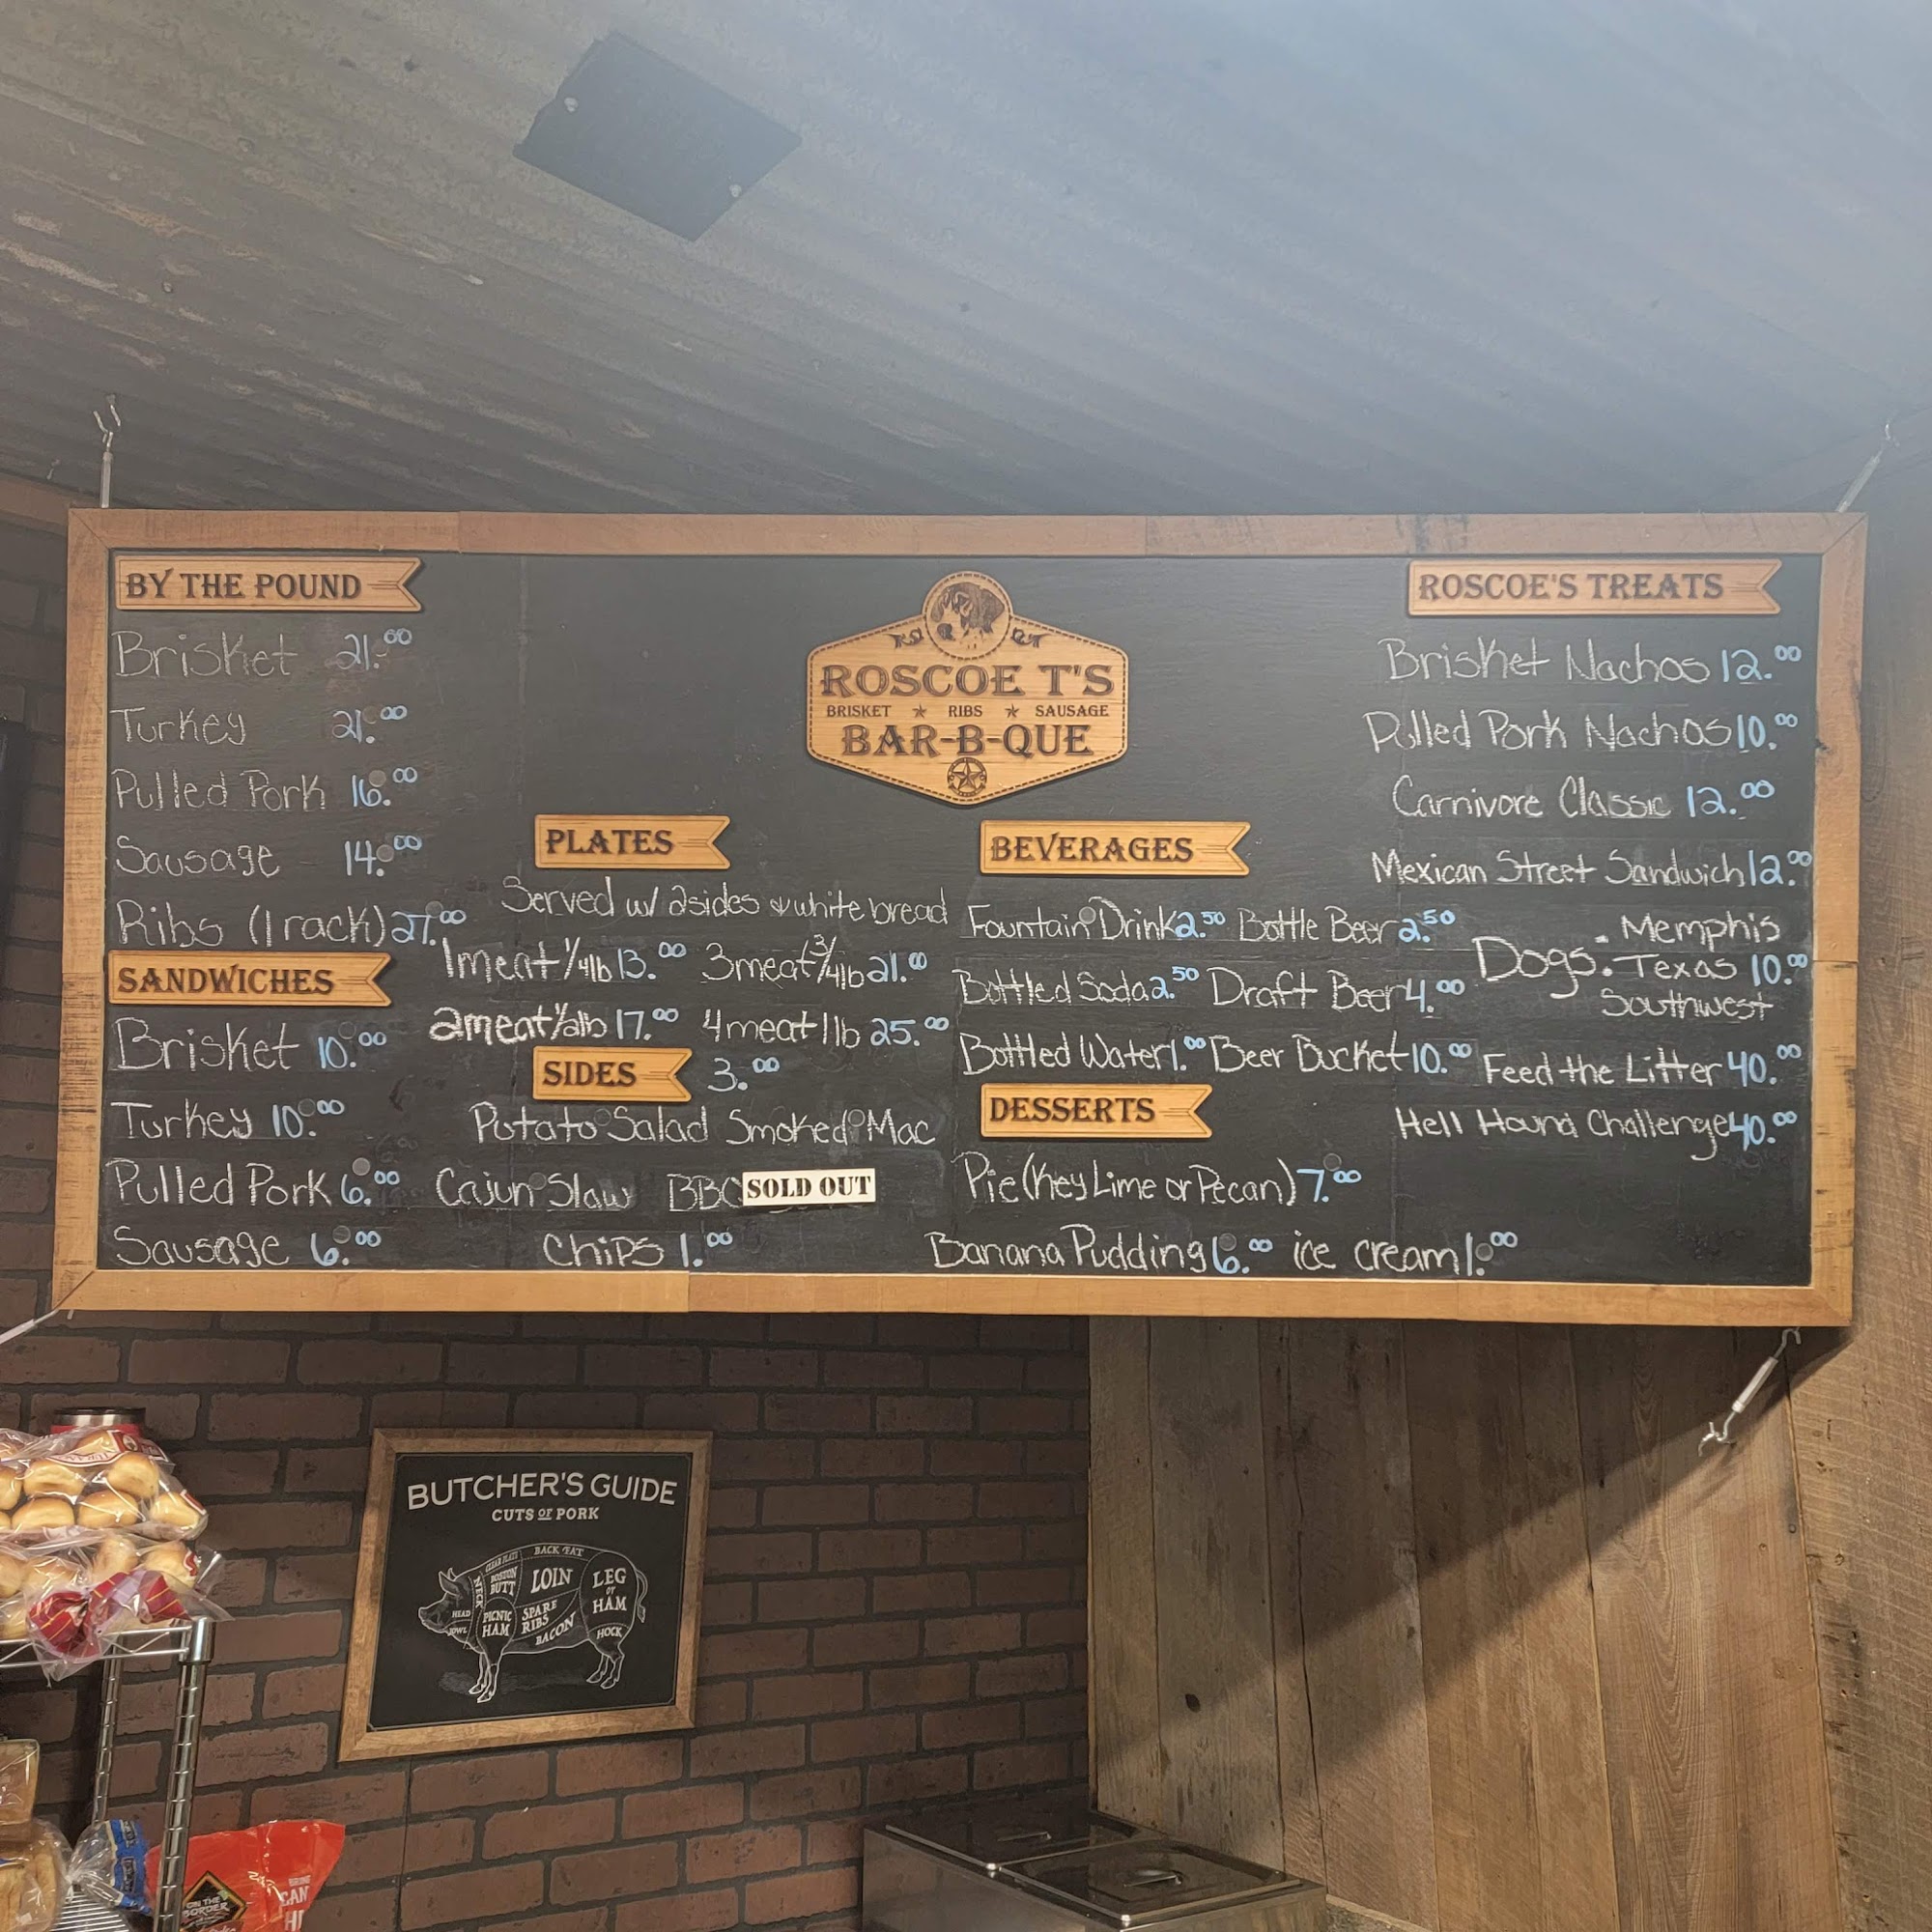 BY THE POUND
Brisket 21.00
Turkey 21.00
Pulled Pork 16.00
Sausage 14.00
Ribs (1 rack) 27.00
SANDWICHES
Brisket 10.00
Turkey 10.00
Pulled Pork 6.00
Sausage 6.00
ROSCOE T'S
BRISKET ★ RIBS ★ SAUSAGE
BAR-B-QUE
PLATES
Served w/ 2 sides & white bread
1 meat 1/4lb 13.00 3 meat 3/4lb 21.00
2 meat 1/2lb 17.00 4 meat 1 lb 25.00
SIDES 3.00
Potato Salad Smoked Mac
Cajun Slaw BBQ SOLD OUT
Chips 1.00
BEVERAGES
Fountain Drink 2.50 Bottle Beer 2.50
Bottled Soda 2.50 Draft Beer 4.00
Bottled Water 1.00 Beer Bucket 10.00
DESSERTS
Pie (Key Lime or Pecan) 7.00
Banana Pudding 6.00 ice cream 1.00
ROSCOE'S TREATS
Brisket Nachos 12.00
Pulled Pork Nachos 10.00
Carnivore Classic 12.00
Mexican Street Sandwich 12.00
Dogs: Memphis
Texas 10.00
Southwest
Feed the Litter 40.00
Hell Hound Challenge 40.00
BUTCHER'S GUIDE
CUTS OF PORK
BACK FAT
CLEAR PLATE
NECK
BOSTON
BUTT
LOIN
LEG
or
HAM
HEAD
JOWL
PICNIC
HAM
SPARE
RIBS
BACON
HOCK
ON THE
BORDER